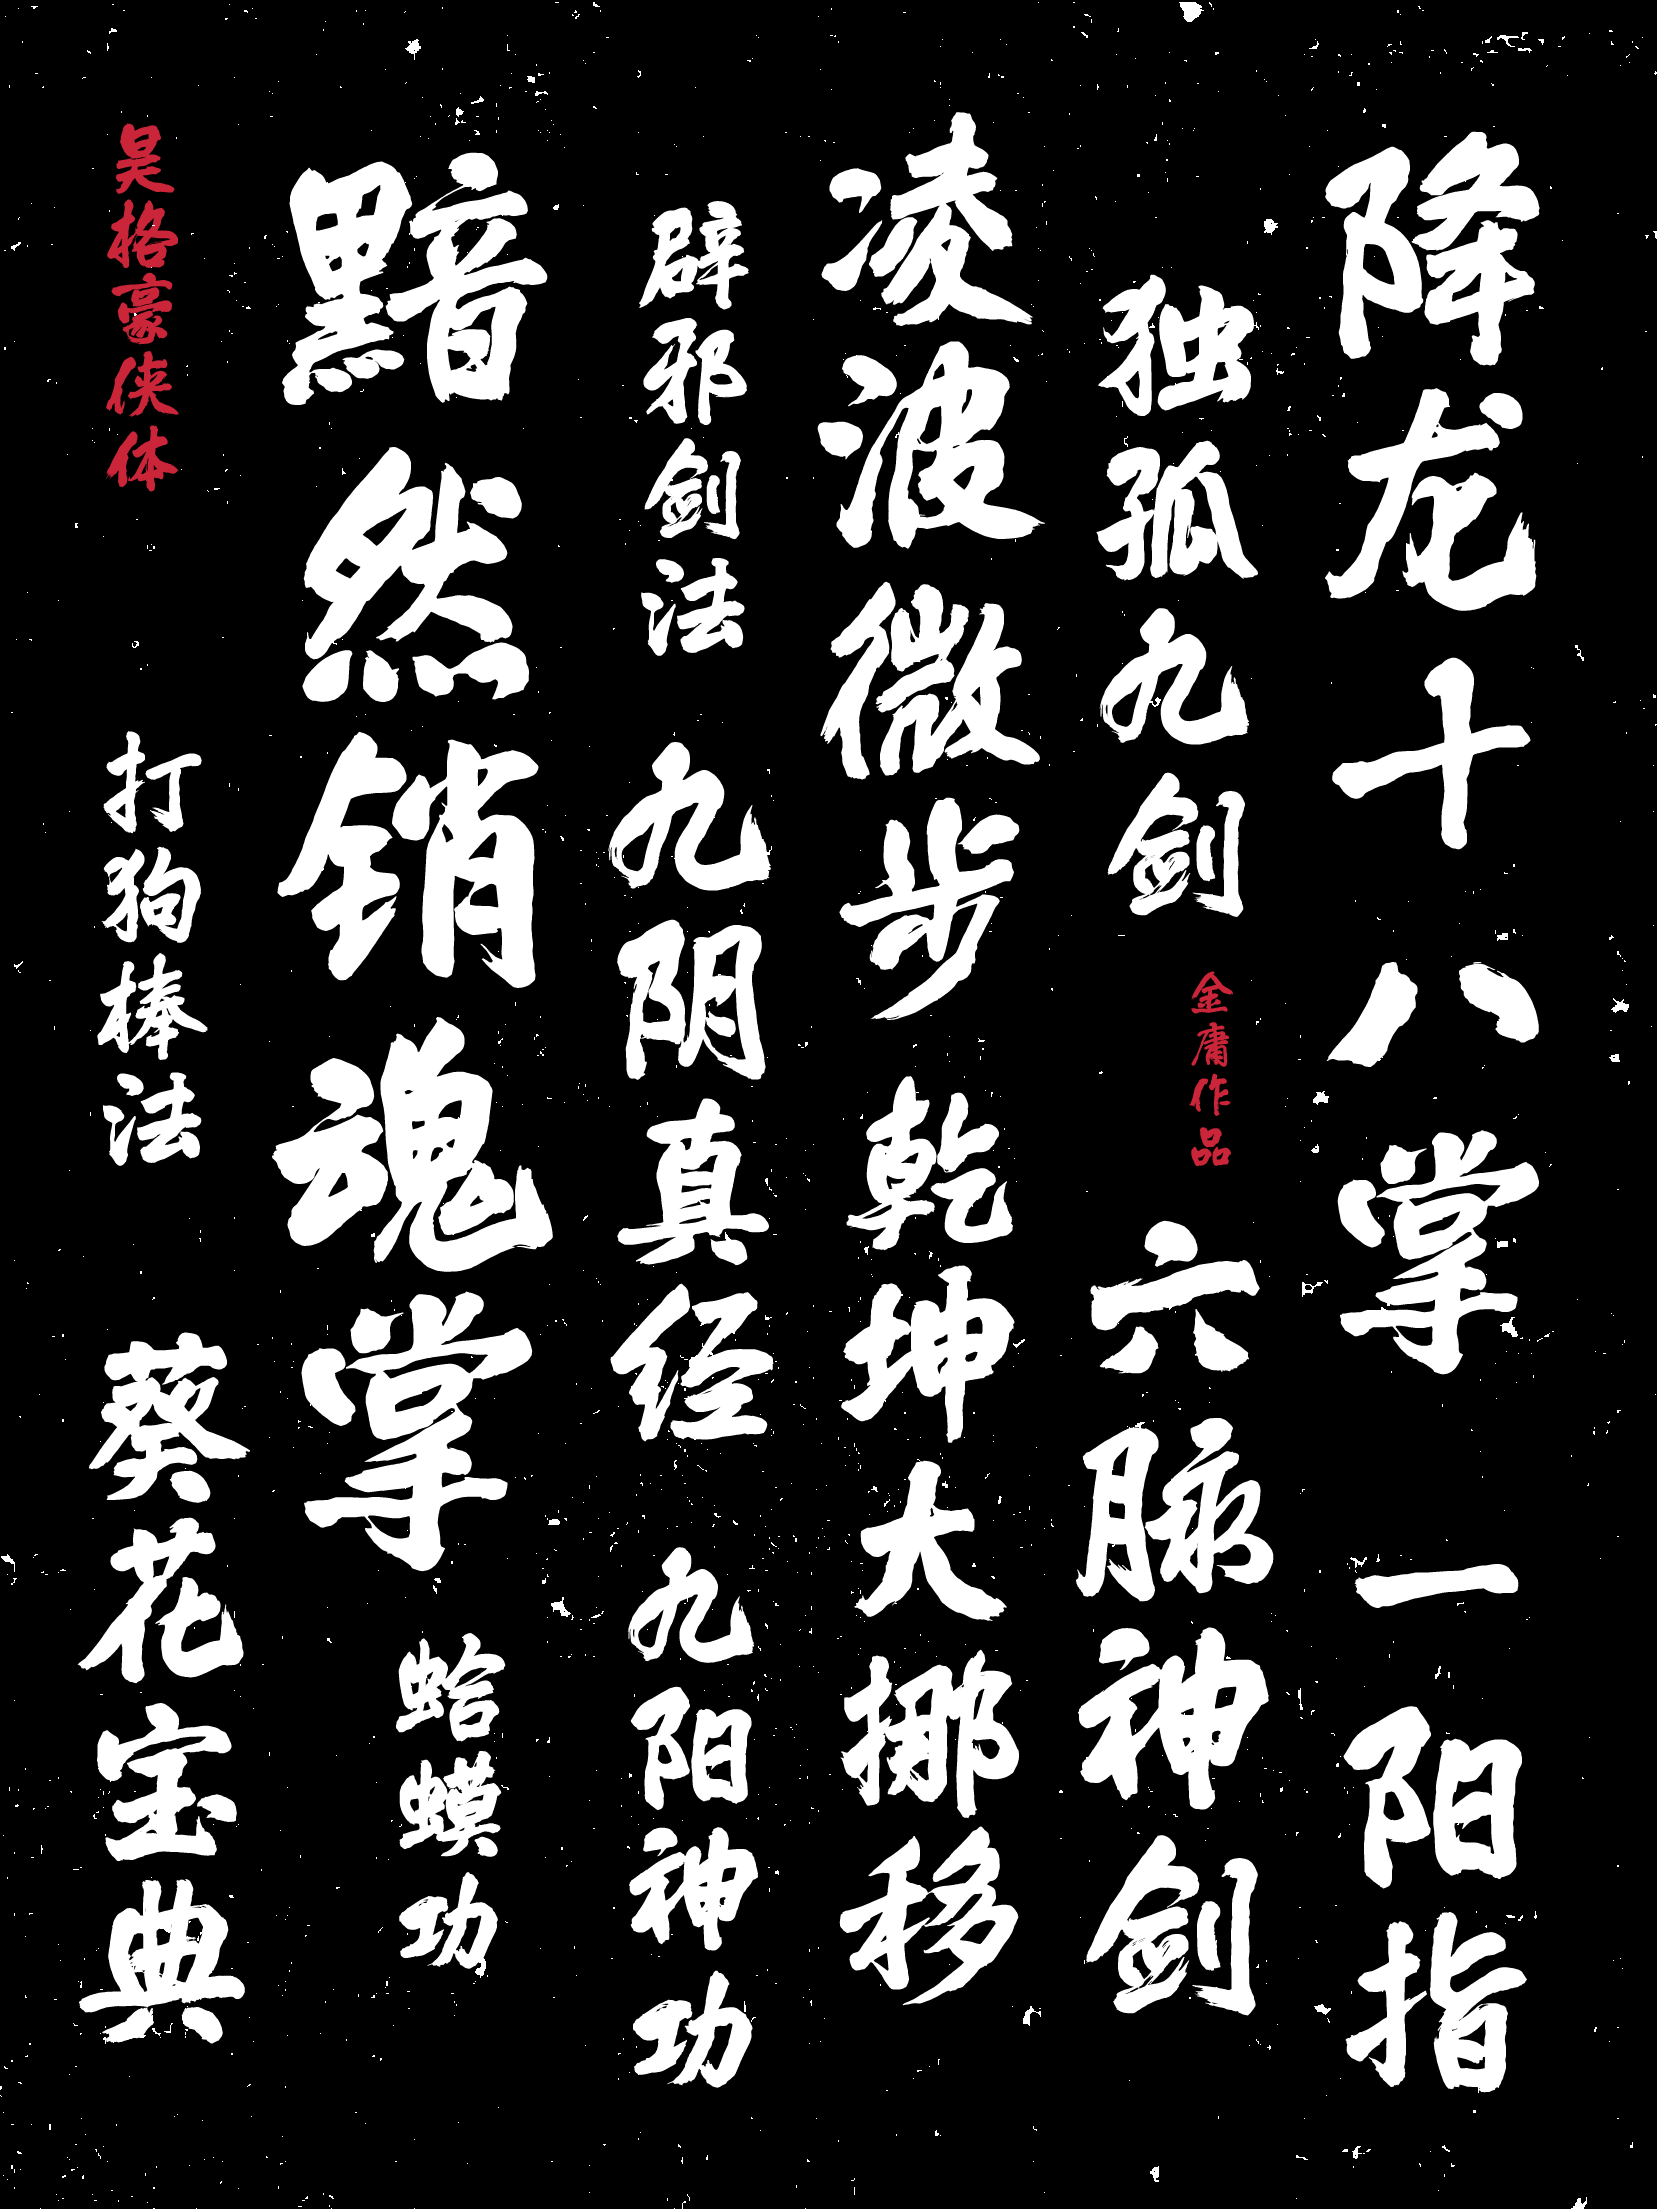 降龙十八掌
一阳指
独孤九剑
金庸作品
六脉神剑
凌波微步
乾坤大挪移
辟邪剑法
九阴真经
九阳神功
黯然销魂掌
蛤蟆功
吴格豪侠体
打狗棒法
葵花宝典